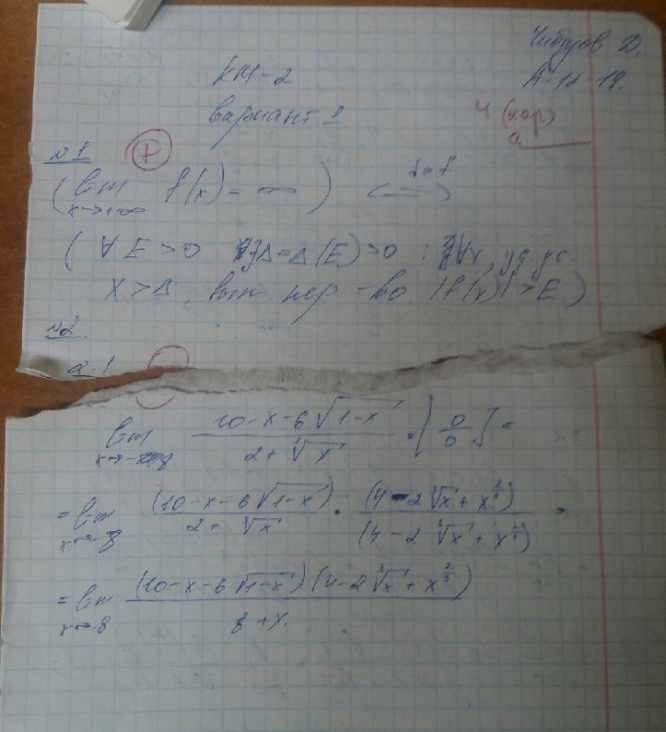 А-12-18.
КМ-2
вариант 1
4 (хор)
№1
(lim x→+∞ f(x) = ∞) ⟺ def
(∀ E > 0 ∃Δ = Δ(E) > 0 : ∀x, уд. ус.
x > Δ, вып нер-во |f(x)| > E.)
№2.
lim x→-8 (10-x-6√(1-x)) / (2+∛x) = [0/0] =
= lim x→-8 (10-x-6√(1-x)) / (2+∛x) · (4-2∛x+x^(2/3)) / (4-2∛x+x^(2/3)) =
= lim x→-8 (10-x-6√(1-x))(4-2∛x+x^(2/3)) / (8+x)